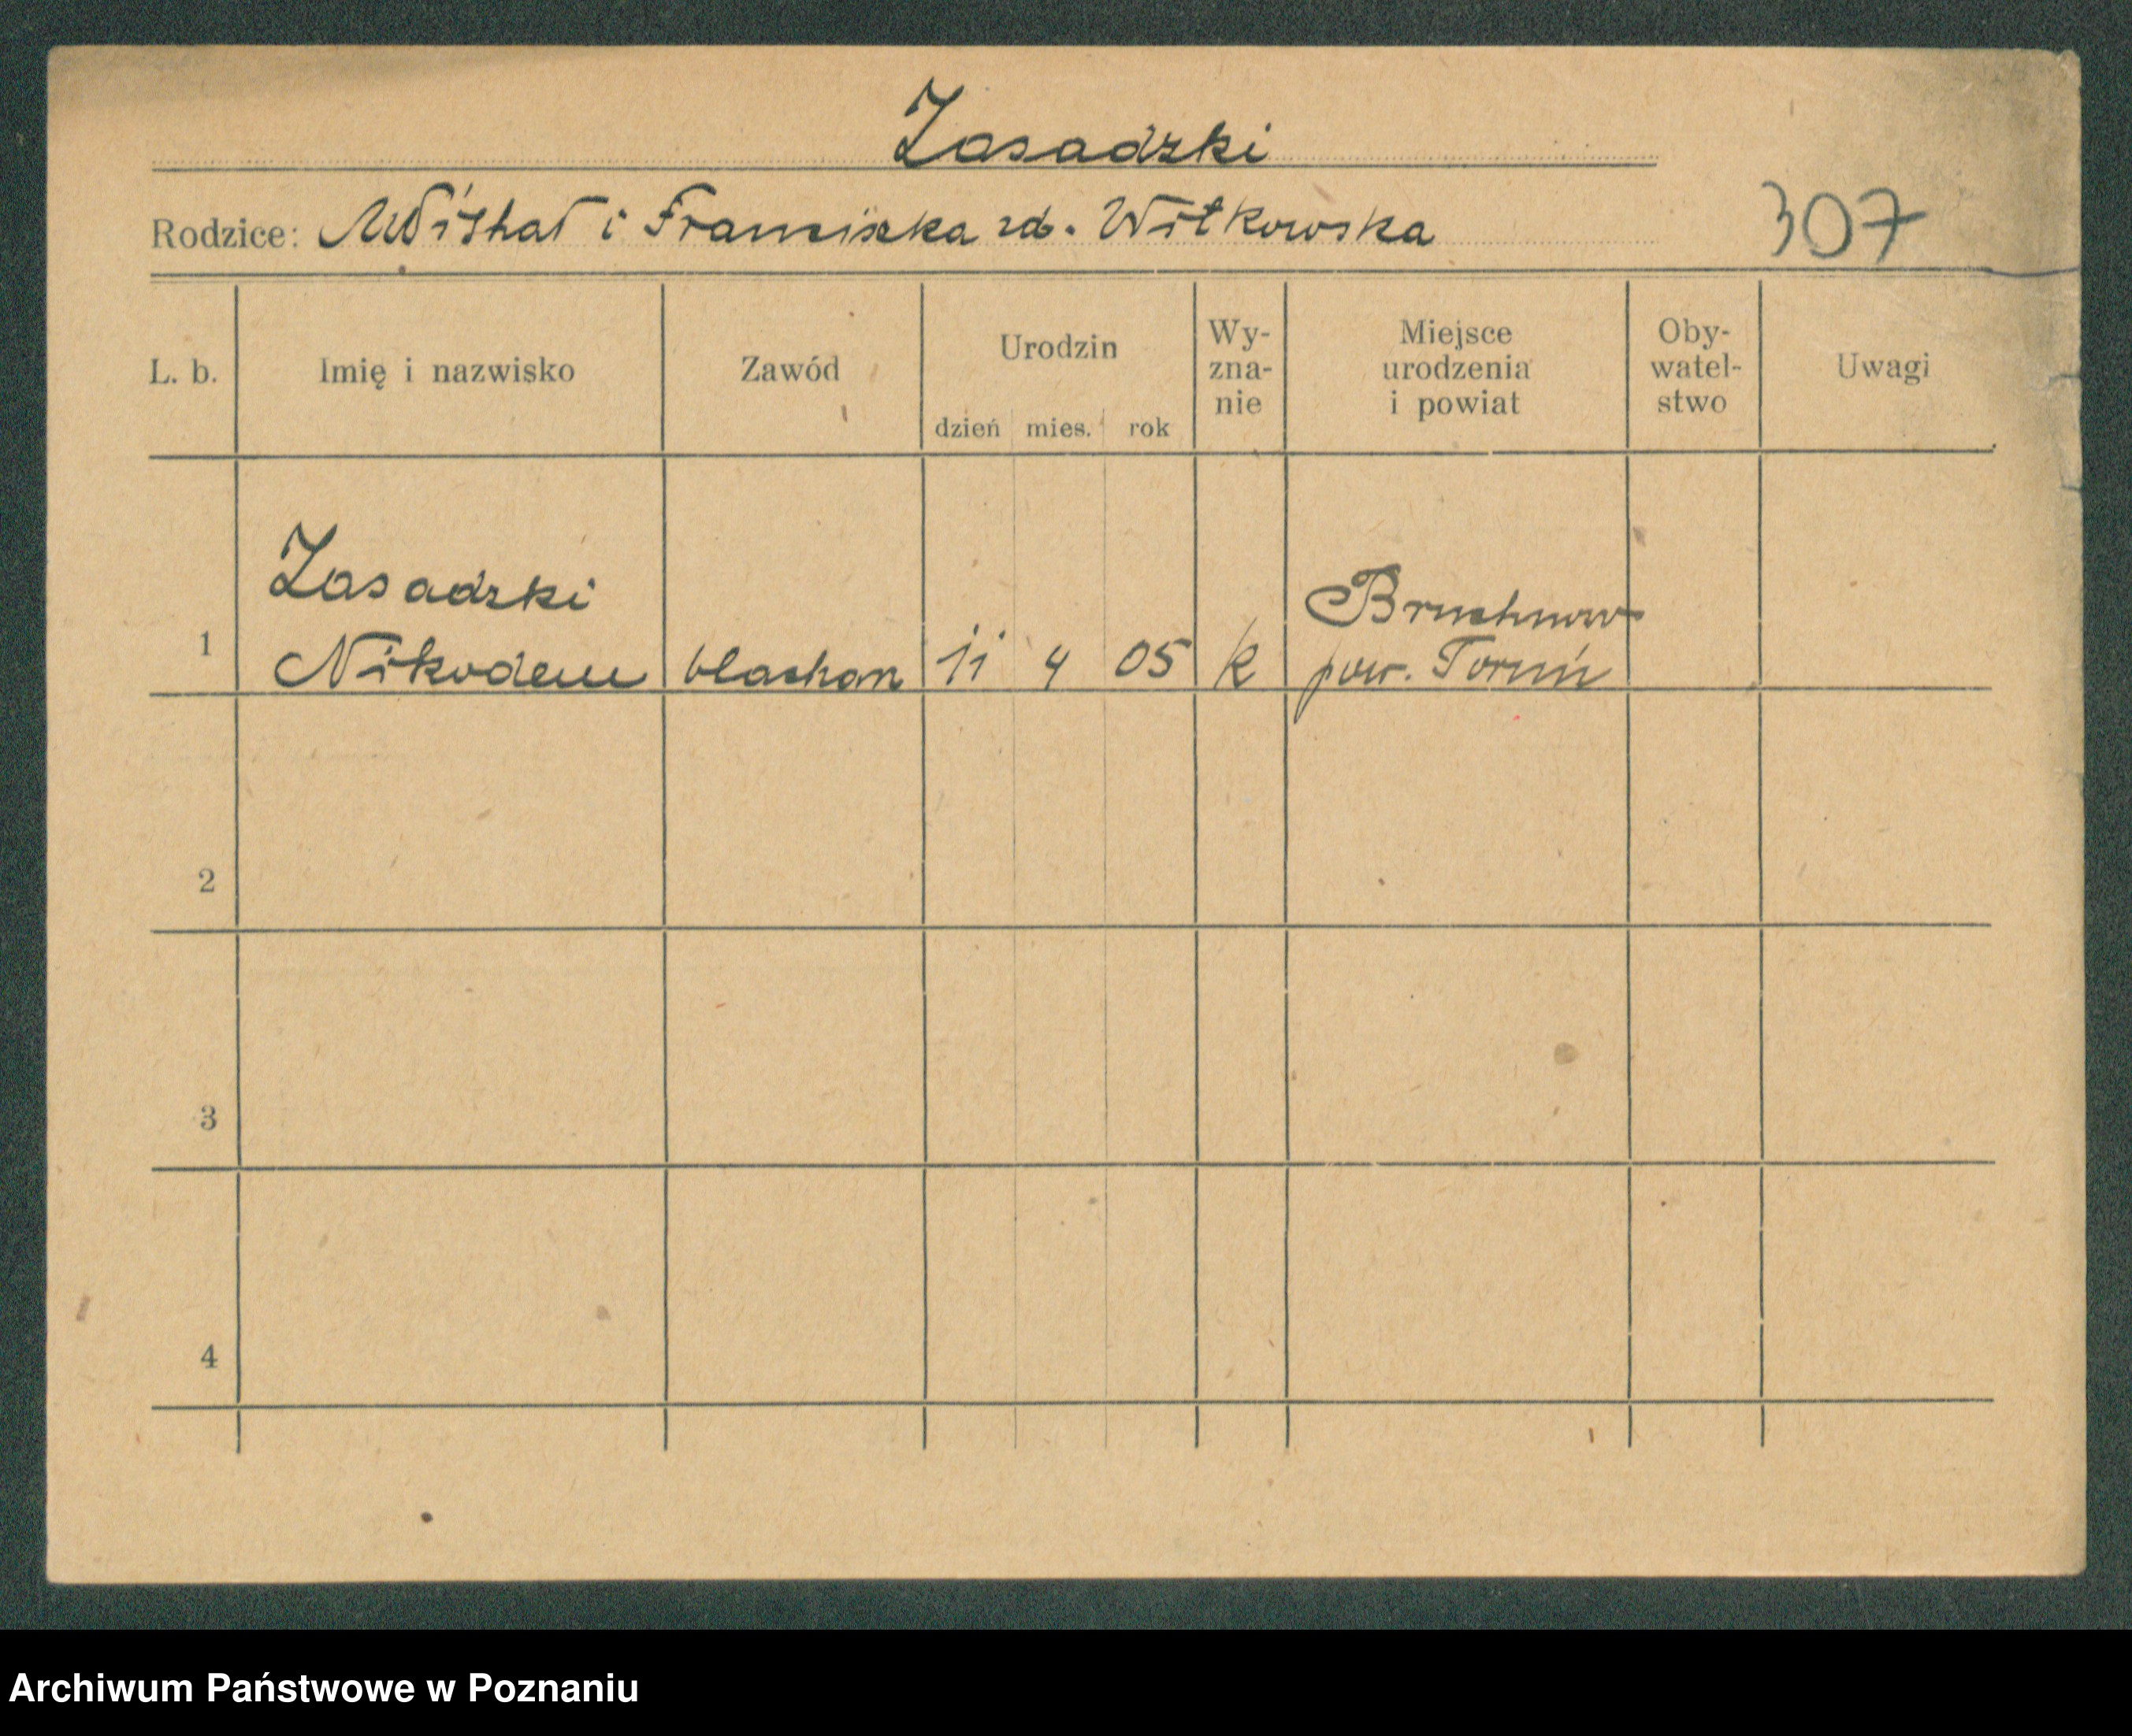 Zasadzki
Rodzice: Michał i Franciszka zd. Witkowska
307
L. b.
Imię i nazwisko
Zawód
Urodzin
dzień mies. rok
Wy-
zna-
nie
Miejsce
urodzenia
i powiat
Oby-
watel-
stwo
Uwagi
Zasadzki
Bruchnow
1 Nikodem blacharz 11 4 05 k pow. Toruń
2
3
4
Archiwum Państwowe w Poznaniu